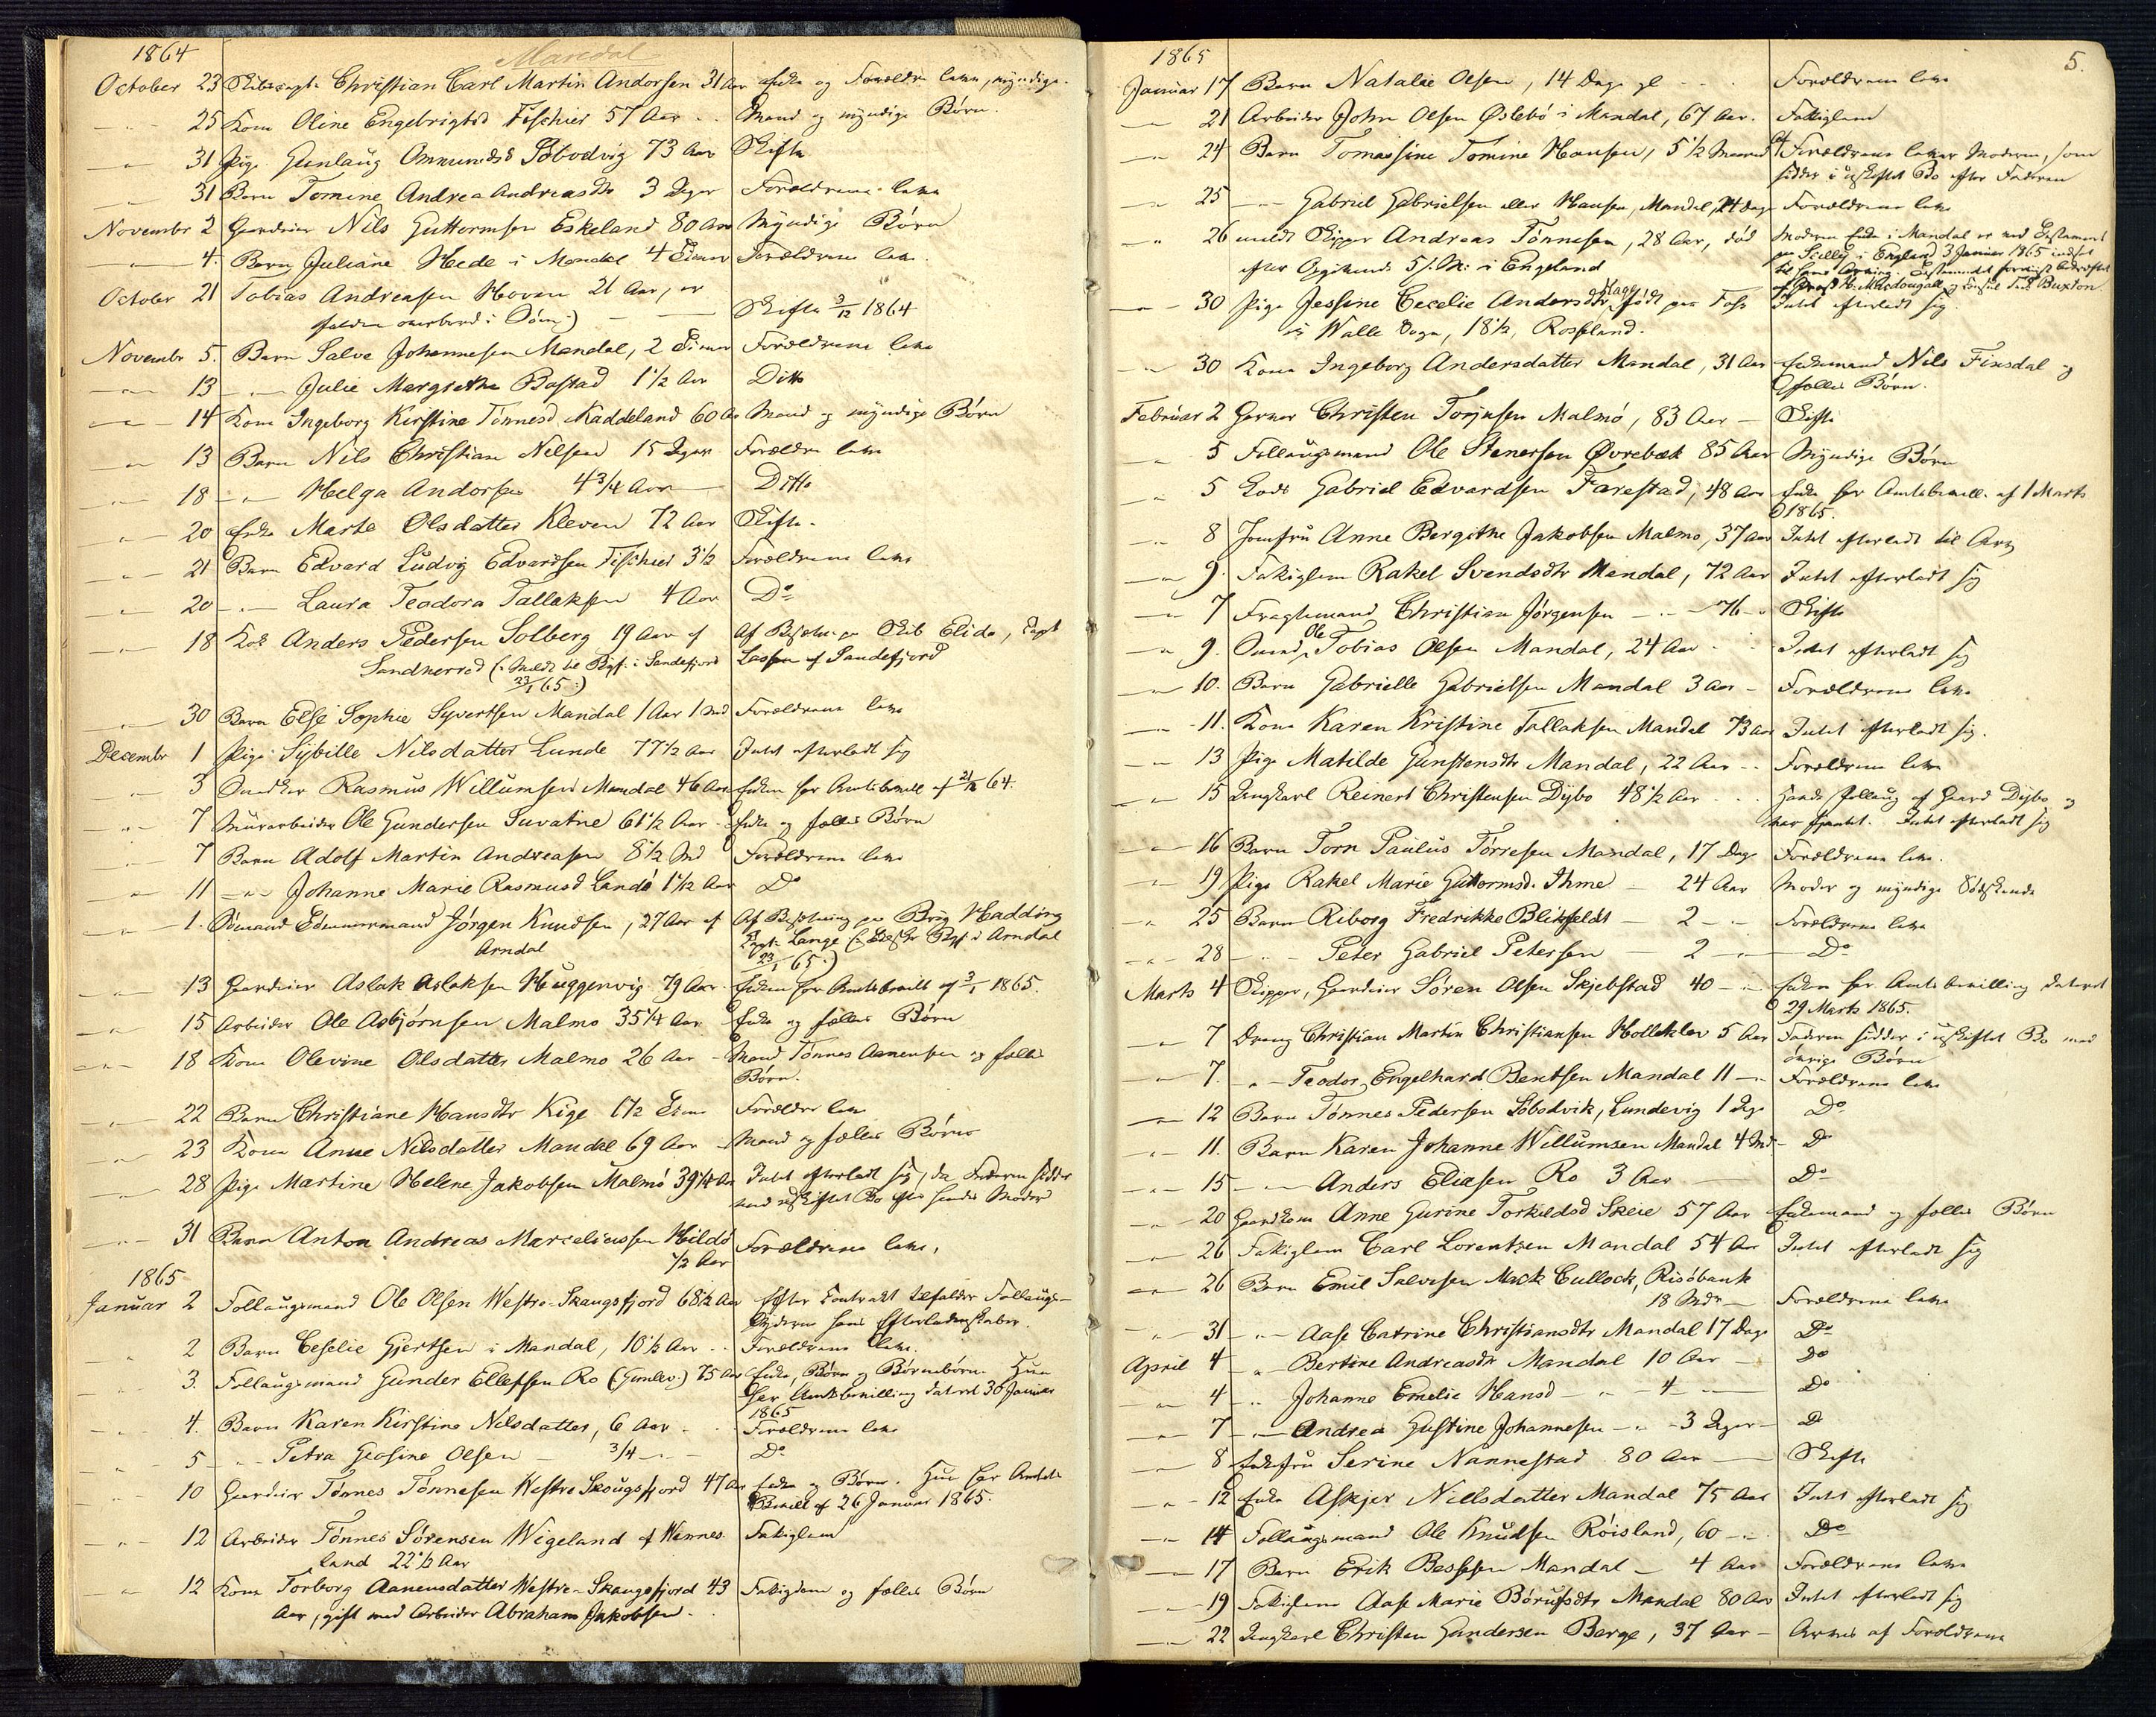 Mandal
1864
October 23 Skibscapt. Christian Carl Martin Andorsen 31 Aar Enke og Forældre leve, myndige.
25 Kone Oline Engebrigtsd Fischier 57 Aar Mand og myndige Børn.
31 Pige Gunlaug Ommundsd Søbodvig 73 Aar Skifte
31 Barn Tomine Andrea Andreasdtr 3 Dager Forældrene leve
Novembr 2 Gaardeier Nils Guttormsen Eskeland 80 Aar Myndige Børn
4. Barn Juliane Hede i Mandal 4 Timer Forældrene leve.
October 21 Tobias Andreasen Hoven 21 Aar, er
falden overbord i Søen :) Skifte 3/12 1864
Novembr 5. Barn Salve Johannesen Mandal, 2 Timer Forældrene leve
13 Julie Margrethe Bastad 1 1/2 Aar Ditto
14 Kone Ingeborg Kirstine Tønnesd. Kaddeland 60 Aar Mand og myndige Børn
13 Barn Nils Christian Nilsen 15 Dager Forældre leve
18 Helga Andorsen 4 3/4 Aar Ditto
20 Enke Marte Olsdatter Kleven 72 Aar Skifte.
21 Barn Edvard Ludvig Edvardsen Fischier 3 1/2 Forældrene leve
20 Laura Teodora Tallaksen 4 Aar Do
18 Kok Anders Pedersen Solberg 19 Aar af Af Besætn. paa Skib Elida, Capt
Sandherred (: Meldt til Byf. i Sandefjord Lassen af Sandefjord
23/1 65 :)
30 Barn Else Sophie Syvertsen Mandal 1 Aar 1 Md Forældrene leve
Decembr 1 Pige Sybille Nilsdatter Lunde 77 1/2 Aar Intet efterladt sig
3 Snedker Rasmus Willumsen Mandal 46 Aar Enken har Amtsbevill af 21/12 64.
7 Murarbeider Ole Gundersen Suvatne 61 1/2 Aar Enke og fælles Børn
7 Barn Adolf Martin Andreasen 8 1/2 Md Forældrene leve
11 Johanne Marie Rasmusd Landø 1 1/12 Aar Do
1. Sømand Tømmermand Jørgen Knudsen, 27 Aar af Af Besætning paa Brig Haddong
Arndal Capt. Lange (: Byf. i Arndal
23/1 65 :)
13 Gaardeier Aslak Aslaksen Huggenvig 79 Aar Enken har Amtsbevill af 3/1 1865.
15 Arbeider Ole Asbjørnsen Malmo 35 1/4 Aar Enke og fælles Børn
18 Kone Olevine Olsdatter Malmo 26 Aar Mand Tønnes Aanensen og fælles
Børn.
22 Barn Christiane Hansdtr Kige 1 1/2 Time Forældre leve
23 Kone Anne Nilsdatter Mandal 69 Aar Mand og fælles Børn
28 Pige Martine Helene Jakobsen Malmö 39 1/4 Aar Intet efterladt sig, da Faderen sidder
med uskiftet Bo efter hendes Moder
31 Barn Anton Andreas Marceliussen Hildö Forældrene leve,
1/2 Aar
1865
Januar 2 Follaugsmand Ole Olsen Westre-Skaugsfjord 68 1/2 Aar Efter Contrakt tilfalder Follaugs-
yderen hans Efterladenskaber.
2 Barn Ceselie Gjertsen i Mandal, 10 1/2 Aar Forældrene leve.
3. Follaugsmand Gunder Ellefsen Ro (Gumlev.) 75 Aar Enke, Børn og Børnebørn. Hun
har Amtsbevilling dateret 30 Januar
1865
4. Barn Karen Kirstine Nilsdatter, 6 Aar Forældrene leve
5 Petra Geosine Olsen 3/4 Do
10 Gaardeier Tønnes Tønnesen Westre Skougsfjord 47 Aar Enke og Børn. Hun har Amts
Bevill af 26 Januar 1865.
12 Arbeider Tønnes Sørensen Wigeland af Wennes- Fatiglem
land 22 1/2 Aar
12 Kone Torborg Aanensdatter Westre-Skaugsfjord 43 Fatiglem og fælles Børn
Aar, gift med Arbeider Abraham Jakobsen.
5.
1865
Januar 17 Barn Natalie Olsen, 14 Dage gl Forældrene leve
21 Arbeider John Olsen Øslebö i Mandal, 67 Aar. Fattiglem
24 Barn Tomassine Tomine Hansen, 5 1/2 Maaned Af Forældrene lever Moderen, som
sidder i uskiftet Bo efter Faderen
25 Gabriel Gabrielsen eller Hansen, Mandal, 24 Dage Forældrene leve
26 meldt Skipper Andreas Tønnesen, 28 Aar, död Moderen Enke i Mandal er ved Testament
efter Opgivende 5/1. i Engeland paa Scilly i England 3 Januar 1865 indsat
til hans Arving. Testamentet forevist bekræftet
af Prest H. Macdougall og Consul Buxton.
30 Pige Jessine Cecelie Andersdtr Stage, født paa Foss Intet efterladt sig.
i Walle Sogn, 18 1/2, Rosseland.
30 Kone Ingeborg Andersdatter Mandal, 31 Aar Enkemand Nils Finsdal og
fælles Børn.
Februar 2 Garver Christen Torjusen Malmö, 83 Aar Skifte
5 Follaugsmand Ole Stenersen Øvrebæk 85 Aar Myndige Børn
5 Lods Gabriel Edvardsen Farestad, 48 Aar Enke har Amtsbevill. af 1 Marts
1865.
8 Jomfru Anne Bergithe Jakobsen Malmo, 37 Aar Intet efterladt til Arv
9. Fatiglem Rakel Svendsdtr Mandal, 72 Aar Intet efterladt sig
7 Fragtemand Christian Jørgensen 76 Skifte
9. Ole Tobias Olsen Mandal, 24 Aar Intet efterladt sig
10. Barn Gabrielle Gabrielsen Mandal 3 Aar Forældrene leve
11. Kone Karen Kristine Tallaksen Mandal 73 Aar Intet efterladt sig.
13 Pige Matilde Gunstensdtr Mandal, 22 Aar Forældrene leve
15 Ungkarl Reinert Christensen Dybo 48 1/2 Aar Havde Follaug af Gaard Dybo og
. Intet efterladt sig
16 Barn Torn Paulus Torresen Mandal, 17 Dage Forældrene leve.
19 Pige Rakel Marie Guttormsd. Ihme 24 Aar Moder og myndige Sødskende
25 Barn Riborg Fredrikke Blikfeldt 2 Forældrene leve
28 Peter Gabriel Petersen 2 Do
Marts 4 Skipper, Gaardeier Sören Olsen Skjebstad 40 Enken har Amtsbevilling dateret
29 Marts 1865.
7 Dreng Christian Martin Christiansen Holleklev 5 Aar Faderen sidder i uskiftet Bo med
övrige Børn
7. Teodor Engelhard Bentsen Mandal 11 Forældrene leve
12 Barn Tønnes Pedersen Söbodvik, Lundevig 1 Dag Do
11. Barn Karen Johanne Willumsen Mandal 4 Md Do
15 Anders Eliasen Ro 3 Aar Do
20 Gaardkone Anne Gurine Torkildsd Skeie 57 Aar Enkemand og fælles Børn
26 Fatiglem Carl Lorentzen Mandal 54 Aar Intet efterladt sig
26 Barn Emil Salvesen Mack Cullock, Risöbank
18 Mdr Forældrene leve
31 Aase Catrine Christiansdtr Mandal 17 Dage Do
April 4 Bertine Andreasdtr Mandal 10 Aar Do
4 Johanne Emelie Hansd 4 Do
7 Andrea Gustine Johannesen 3 Dager Do
8 Enkefru Serine Nannestad 80 Aar Skifte
12 Enke Askjer Nilsdatter Mandal 75 Aar Intet efterladt sig
14 Follaugsmand Ole Knudsen Röisland, 60 Do
17 Barn Erik Bessesen Mandal 4 Aar Forældrene leve
19 Fatiglem Aase Marie Börufsdtr Mandal 80 Aar Intet efterladt sig
22 Ungkarl Christen Gundersen Berge, 37 Aar Arves af Forældrene